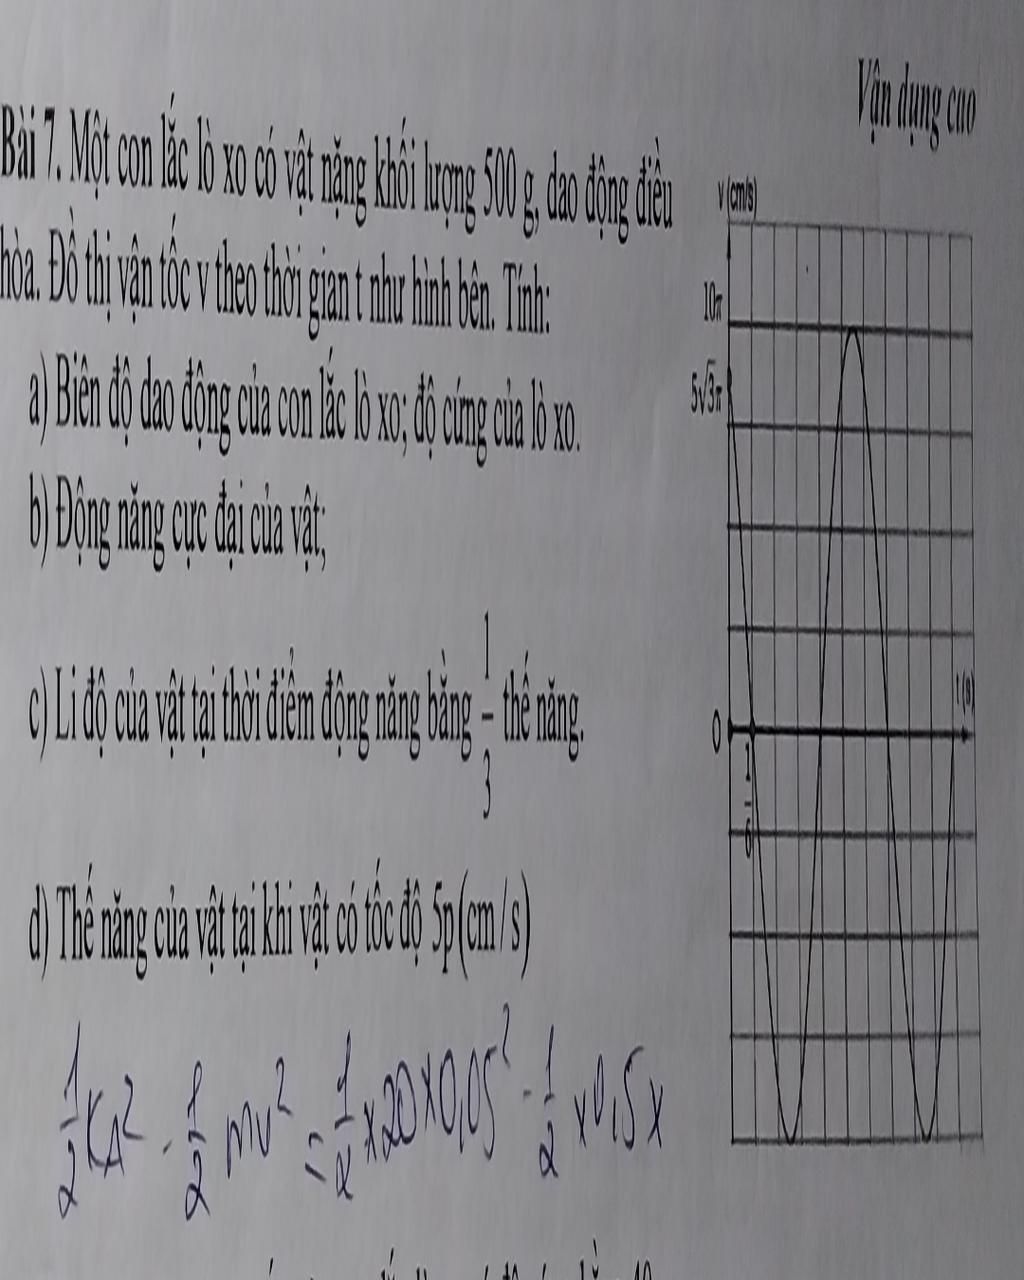 Vận dụng cao
Bài 7. Một con lắc lò xo có vật nặng khối lượng 500 g, dao động điều
hòa. Đồ thị vận tốc v theo thời gian t như hình bên. Tính:
a) Biên độ dao động của con lắc lò xo; độ cứng của lò xo.
b) Động năng cực đại của vật;
c) Li độ của vật tại thời điểm động năng bằng 1/3 thế năng.
d) Thế năng của vật tại khi vật có tốc độ 5p(cm/s)
v (cm/s)
10π
5√3π
0
t (s)
1/6
1/2 KA² - 1/2 mv² = 1/2 x 20 x 0,05² - 1/2 x 0,5 x